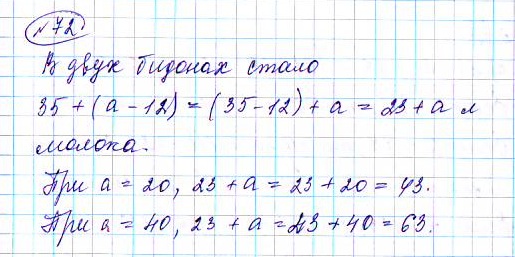 №72.
В двух бидонах стало
35 + (а - 12) = (35 - 12) + а = 23 + а л
молока.
При а = 20, 23 + а = 23 + 20 = 43.
При а = 40, 23 + а = 23 + 40 = 63.